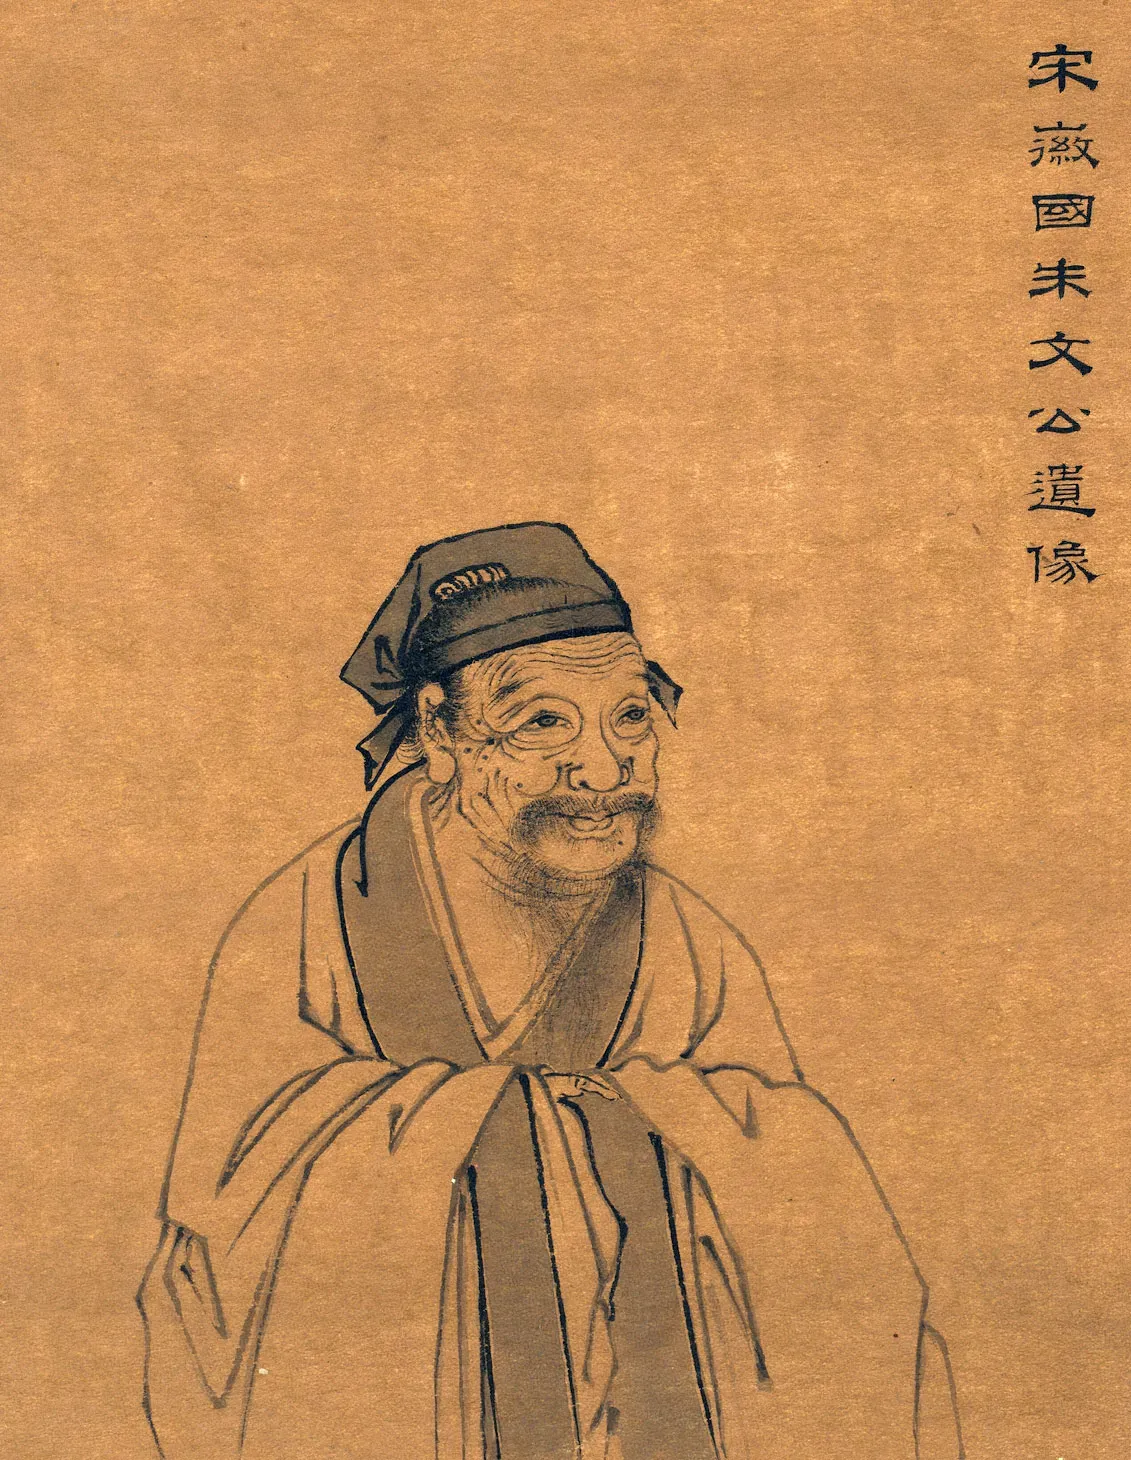 宋徽國朱文公遺像